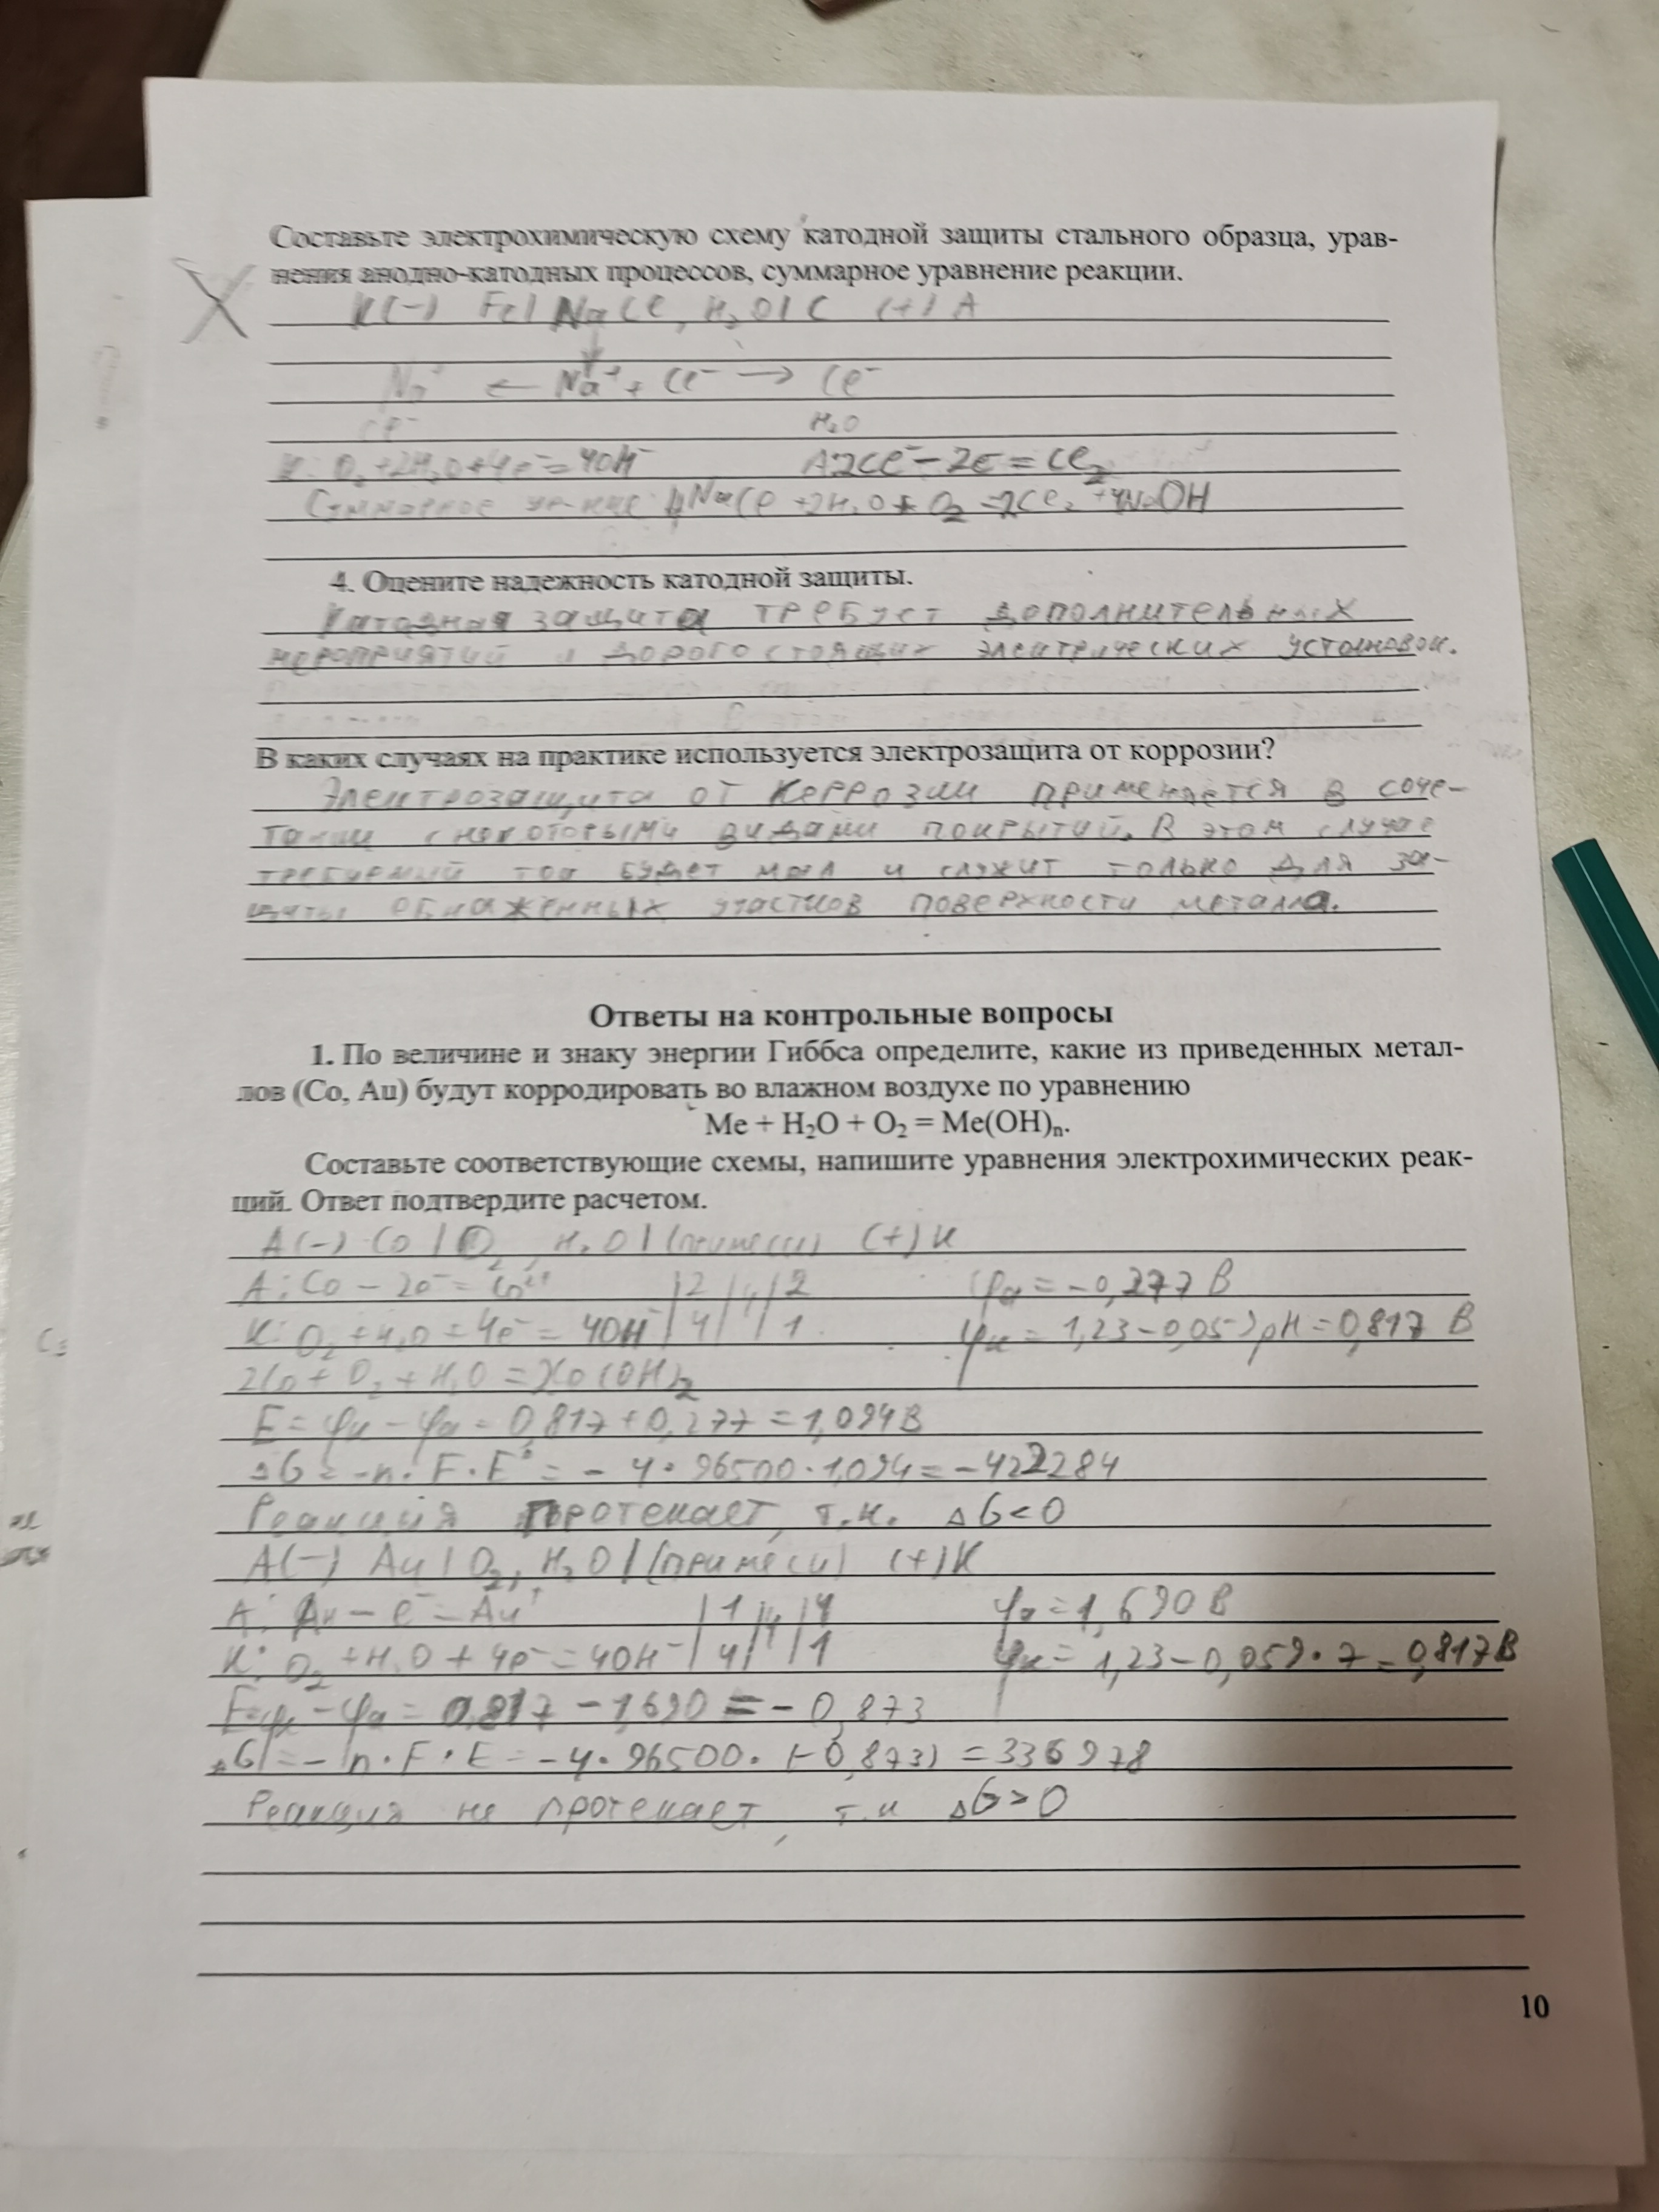 Составьте электрохимическую схему катодной защиты стального образца, урав-
нения анодно-катодных процессов, суммарное уравнение реакции.
X
K(-) Fe | NaCl, H₂O | C (+) A
Na⁺ ← Na⁺ + Cl⁻ → Cl⁻
H₂O
K: O₂ + 2H₂O + 4e⁻ = 4OH⁻ A: 2Cl⁻ - 2e = Cl₂
Суммарное ур-ние: 4NaCl + 2H₂O + O₂ = 2Cl₂ + 4NaOH
4. Оцените надежность катодной защиты.
Катодная защита требует дополнительных
мероприятий и дорогостоящих электрических установок.
В каких случаях на практике используется электрозащита от коррозии?
Электрозащита от Керрозии применяется в соче-
тании с некоторыми видами покрытий. В этом случае
требуемый ток будет мал и служит только для за-
щиты обнаженных участков поверхности металла.
Ответы на контрольные вопросы
1. По величине и знаку энергии Гиббса определите, какие из приведенных метал-
лов (Co, Au) будут корродировать во влажном воздухе по уравнению
Me + H₂O + O₂ = Me(OH)ₙ.
Составьте соответствующие схемы, напишите уравнения электрохимических реак-
ций. Ответ подтвердите расчетом.
A(-) Co | O₂, H₂O | (примеси) (+) K
A: Co - 2e⁻ = Co²⁺ | 2 | 4 | 2 φa = -0,277 В
K: O₂ + H₂O + 4e⁻ = 4OH⁻ | 4 | | 1 φк = 1,23 - 0,059 pH = 0,817 В
2Co + O₂ + H₂O = 2Co(OH)₂
E = φк - φa = 0,817 + 0,277 = 1,094 В
ΔG = -n · F · E° = - 4 · 96500 · 1,094 = -422284
Реакция протекает, т.к. ΔG < 0
A(-) Au | O₂, H₂O | (примеси) (+) K
A: Au - e⁻ = Au⁺ | 1 | 4 | 4 φa = 1,690 В
K: O₂ + H₂O + 4e⁻ = 4OH⁻ | 4 | | 1 φк = 1,23 - 0,059 · 7 = 0,817 В
E = φк - φa = 0,817 - 1,690 = - 0,873
ΔG = - n · F · E = -4 · 96500 · (-0,873) = 336978
Реакция не протекает, т.к ΔG > 0
10